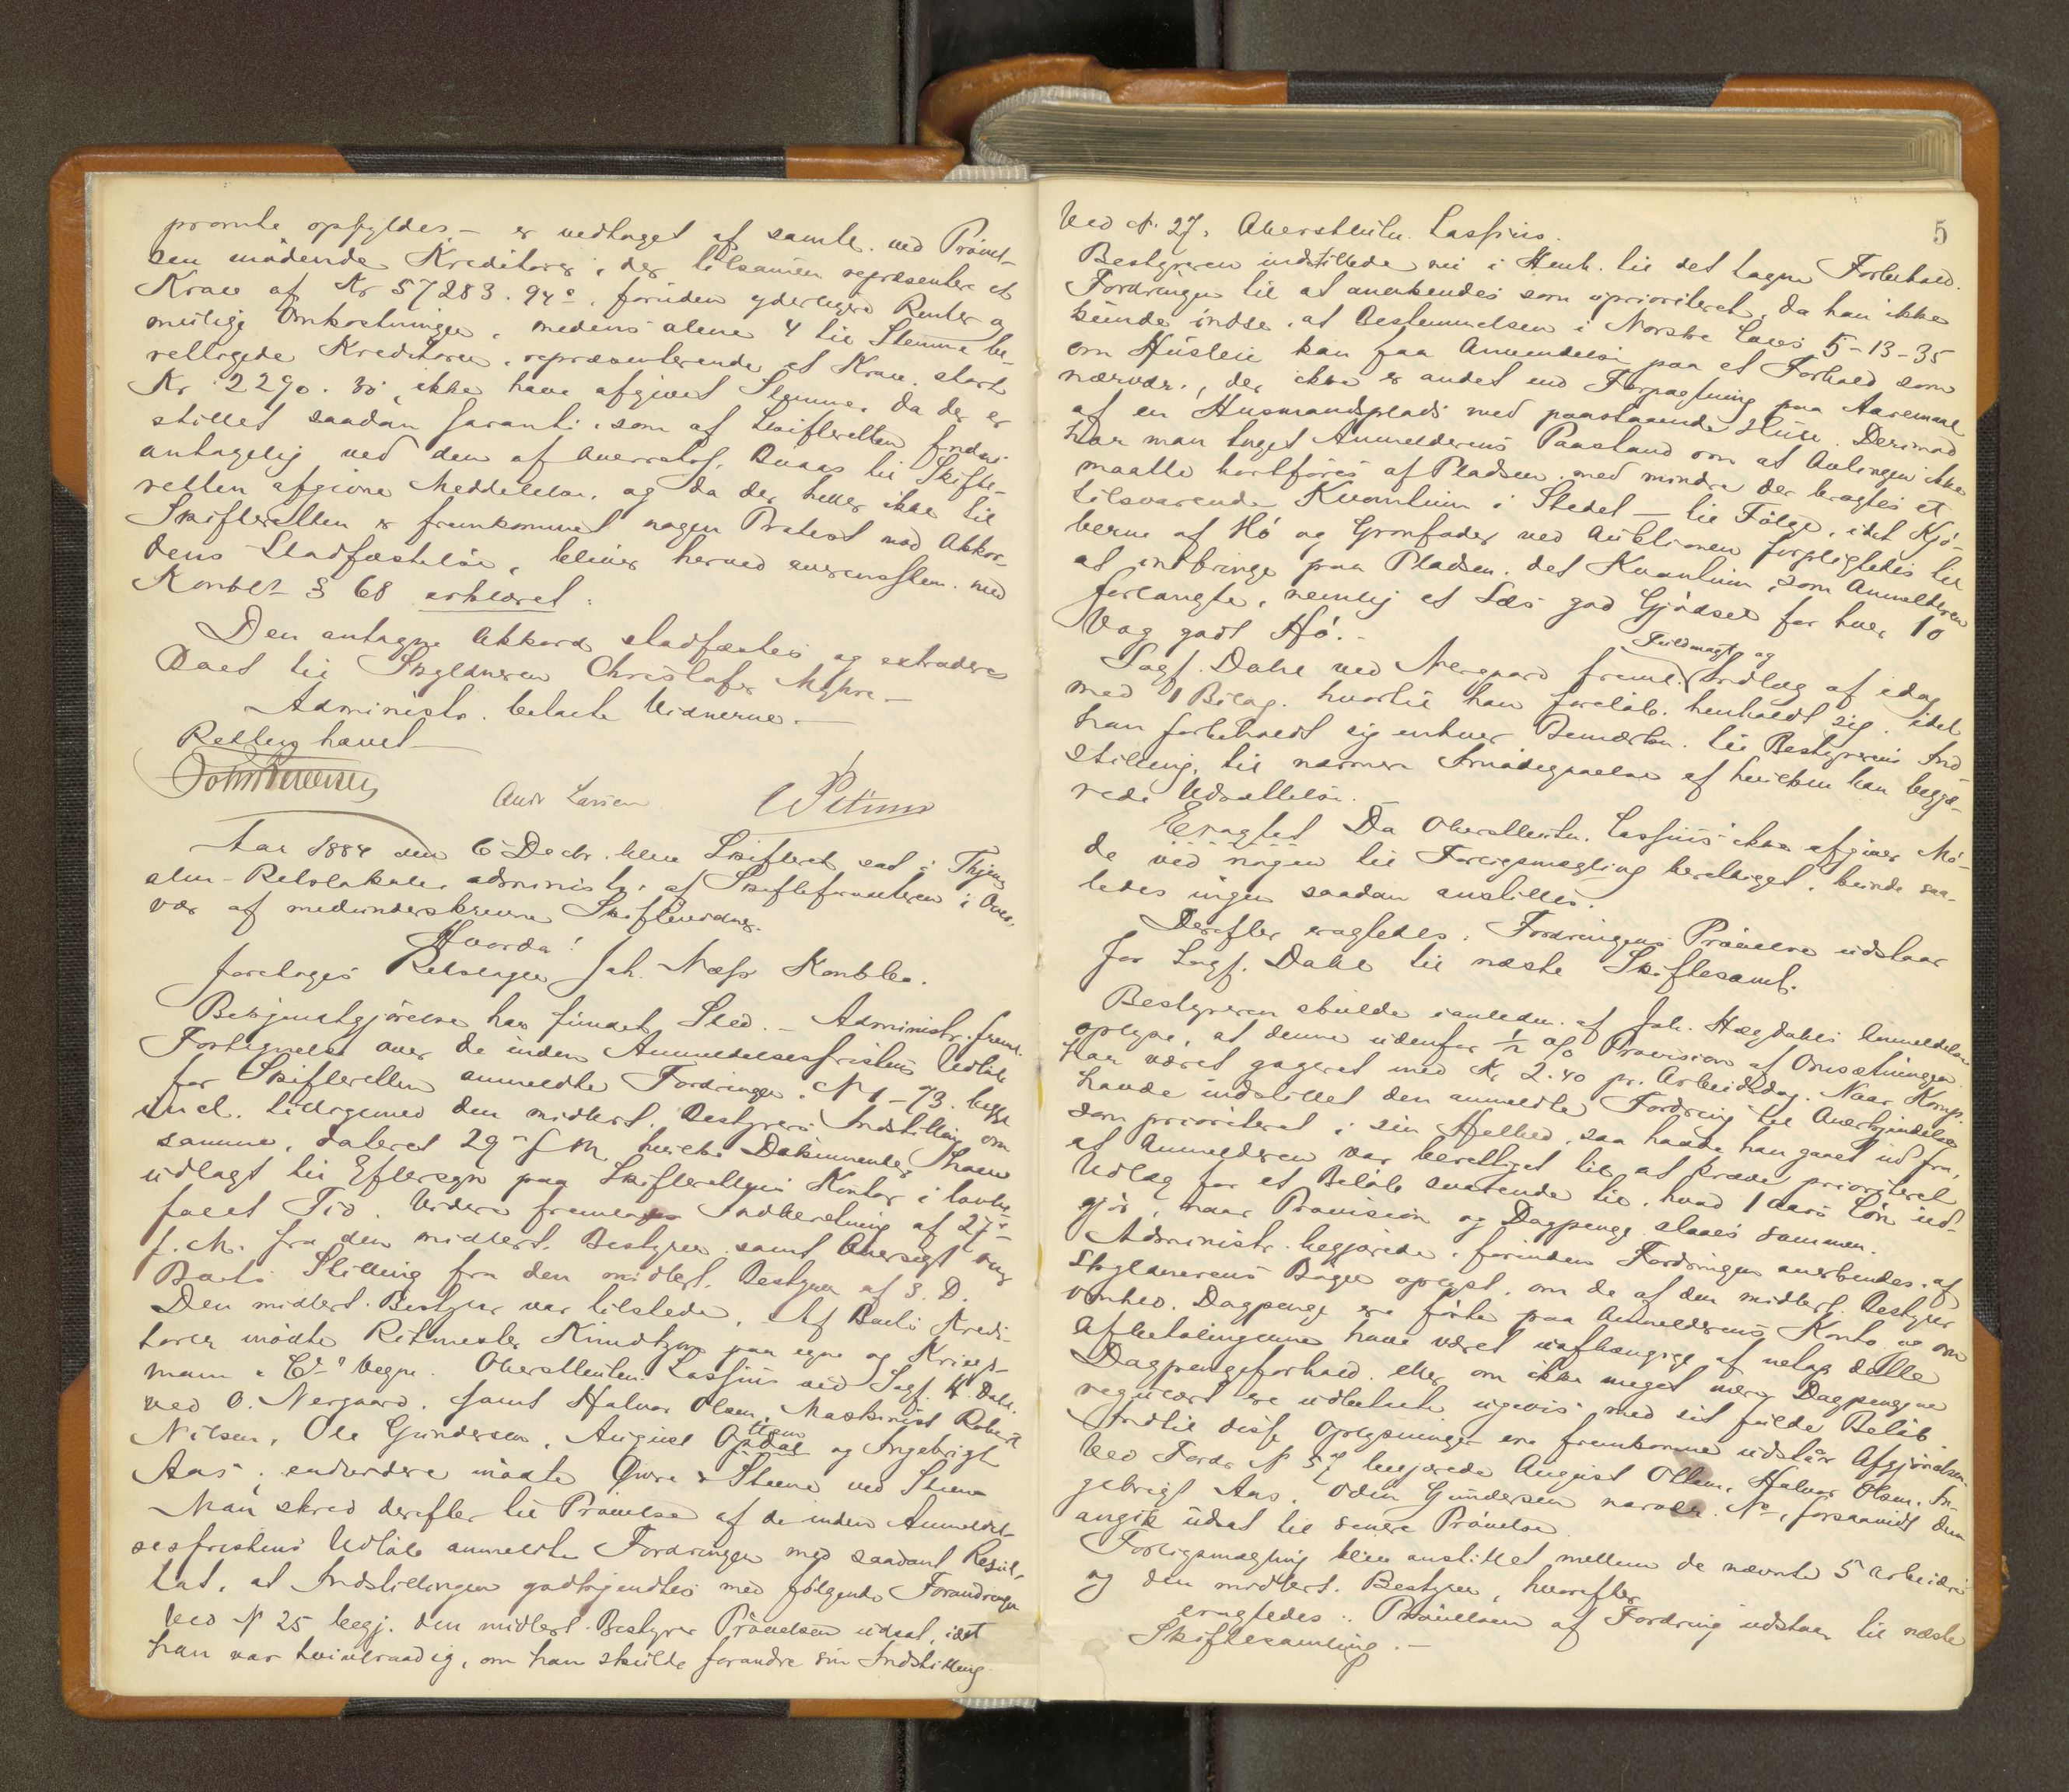 promte opfyldes – er vedtaget af samtl. ved Prøvel-
sen mødende Kreditorer, der tilsammen repræsenter et
Krav af Kr 57283.94 ø. foruden yderligere Renter og
mulige Omkostninger, medens alene 4 til Stemme be-
rettigede Kreditorer, repræsenterende et Krav, stort
Kr. 2290.30, ikke have afgivet Stemme. Da der er
stillet saadan Garanti, som af Skifteretten findes
antagelig ved den af Overretssf. Buaas til Skifte-
retten afgivne Meddelelse, og da der heller ikke til
Skifteretten er fremkommet nogen Protest mod Akkor-
dens Stadfæstelse, bliver herved overensstem. med
Konkl § 68 erklæret:
Den antagne Akkord stadfæstes og extraderes
Boet til Skyldneren Christofer Myhre –
Administr. betalte Vidnerne. –
Retten hævet –
Andr Larsen
Aar 1884 den 6 Decbr. blev Skifteret sat i Thjems
alm. Retslokale, administr. af Skifteforvalteren i Over-
vær af medunderskrevne Skiftevidner.
Hvorda!
foretoges Retsdagen Joh. Næss Konkbo.
Bekjendtgjørelse har fundet Sted. – Administr. freml.
Fortegnelse over de inden Anmeldelsesfristens Udløb
for Skifteretten anmeldte Fordringer, N 1–73. begge
incl. tilligemed den midlert. Bestyrers Indstilling om
samme, dateret 29 f. M. hvilke Dokumenter have
udlagt til Eftersyn paa Skifterettens Kontor i lovbe-
falet Tid. Videre fremlagdes Indberetning af 27
f. M. fra den midlert. Bestyrer samt Oversigt over
Boets Stilling fra den midlert. Bestyrer af 3. D.
Den midlert. Bestyrer var tilstede. Af Boets Kredi-
torer mødte Ritmester Knudtzon paa egne og
mann & Co's Vegne. Oberstlieuten. Lassius ved Sagf. K. Dahl.
ved O. Nergaard, samt Halvor Olsen, Maskinist Robert
Nilsen, Ole Gundersen, August Opdal og Ingebrigt
Aas; endvidere mødte Øwre & Steene ved Steene
Man skred derefter til Prøvelse af de inden Anmeldel-
sesfristens Udløb anmeldte Fordringer med saadant Resul-
tat, at Indstillingen godkjendtes med følgende Forandringer
Ved N 25 begj. den midlert. Bestyrer Prøvelsen udsat, idet
han var tvivlraadig, om han skulde forandre sin Indstilling.
5
Ved N. 27. Oberstleutn. Lassius.
Bestyreren indstillede nu i Henh. til det tagne Forbehold.
Fordringen til at anerkjendes som uprioriteret, da han ikke
kunde indse, at Bestemmelsen i Norske Lovs 5-13-35
om Husleie kan faa Anvendelse paa et Forhold som
nærvær., der ikke er andet end Forpagtning paa Aaremaal
af en Husmandsplads med paastaaende Huse. Derimod
har man taget Anmelderens Paastand om at Avlingen ikke
maatte bortføres af Pladsen, med mindre der bragtes et
tilsvarende Kvantum i Stedet – til Følge, idet Kjø-
berne af Hø og Grønfoder ved Auktionen forpligtedes til
at indbringe paa Pladsen det Kvantum, som Anmelderen
forlangte, nemlig et Læs god Gjødsel for hver 10
Vog godt Hø. –
Fuldmagt og
Sagf. Dahl ved Nergaard freml. Indlæg af idag
med 1 Bilag, hvortil han foreløb. henholdt sig, idet
han forbeholdt sig enhver Bemærkn. til Bestyrerens Ind-
stilling, til nærmere Imødegaaelse af hvilken han begjæ-
rede Udsættelse. –
Eragtet Da Oberstleutn. Lassius ikke afgiver Mø-
de ved nogen til Forligsmægling berettiget, kunde saa-
ledes ingen saadan anstilles.
Derefter eragtedes: Fordringens Prøvelse udstaar
for Sagf. Dahl til næste Skiftesaml.
Bestyreren skulde i anledn. af Joh. Hægdahls Anmeldelse
oplyse, at denne udenfor ½ % Provision af Omsætningen
har været gageret med Kr 2.40 pr. Arbeidsdag. Naar Komp.
havde indstillet den anmeldte Fordring til Anerkjendelse
som prioriteret i sin Helhed, saa havde han gaaet ud fra,
at Anmelderen var berettiget til at kræve prioriteret
Udlæg for et Beløb svarende til, hvad 1 Aars Løn ud-
gjør, naar Provision og Dagpenge slaaes sammen.
Administr. begjærede, forinden Fordringen anerkendes, af
Skyldnerens Bøger oplyst, om de af den midlert. Bestyrer
omhand. Dagpenge ere førte paa Anmelderens Konto og om
Afbetalingerne have været uafhængige af netop dette
Dagpengeforhold, eller om ikke meget mere Dagpengene
regulært ere udbetalte ugevis med sit fulde Beløb.
Indtil disse Oplysninger ere fremkomne udstaar Afgjørelsen.
Ved Fordr N 57 begjærede August Olsen, Halvor Olsen, In-
gebrigt Aas, Odin Gundersen nærvær. No, forsaavidt dem
angik udsat til senere Prøvelse.
Forligsmægling blev anstillet mellem de nævnte 5 Arbeidere
og den midlert. Bestyrer, hvorefter
eragtedes: Prøvelsen af Fordring udstaar til næste
Skiftesamling. –